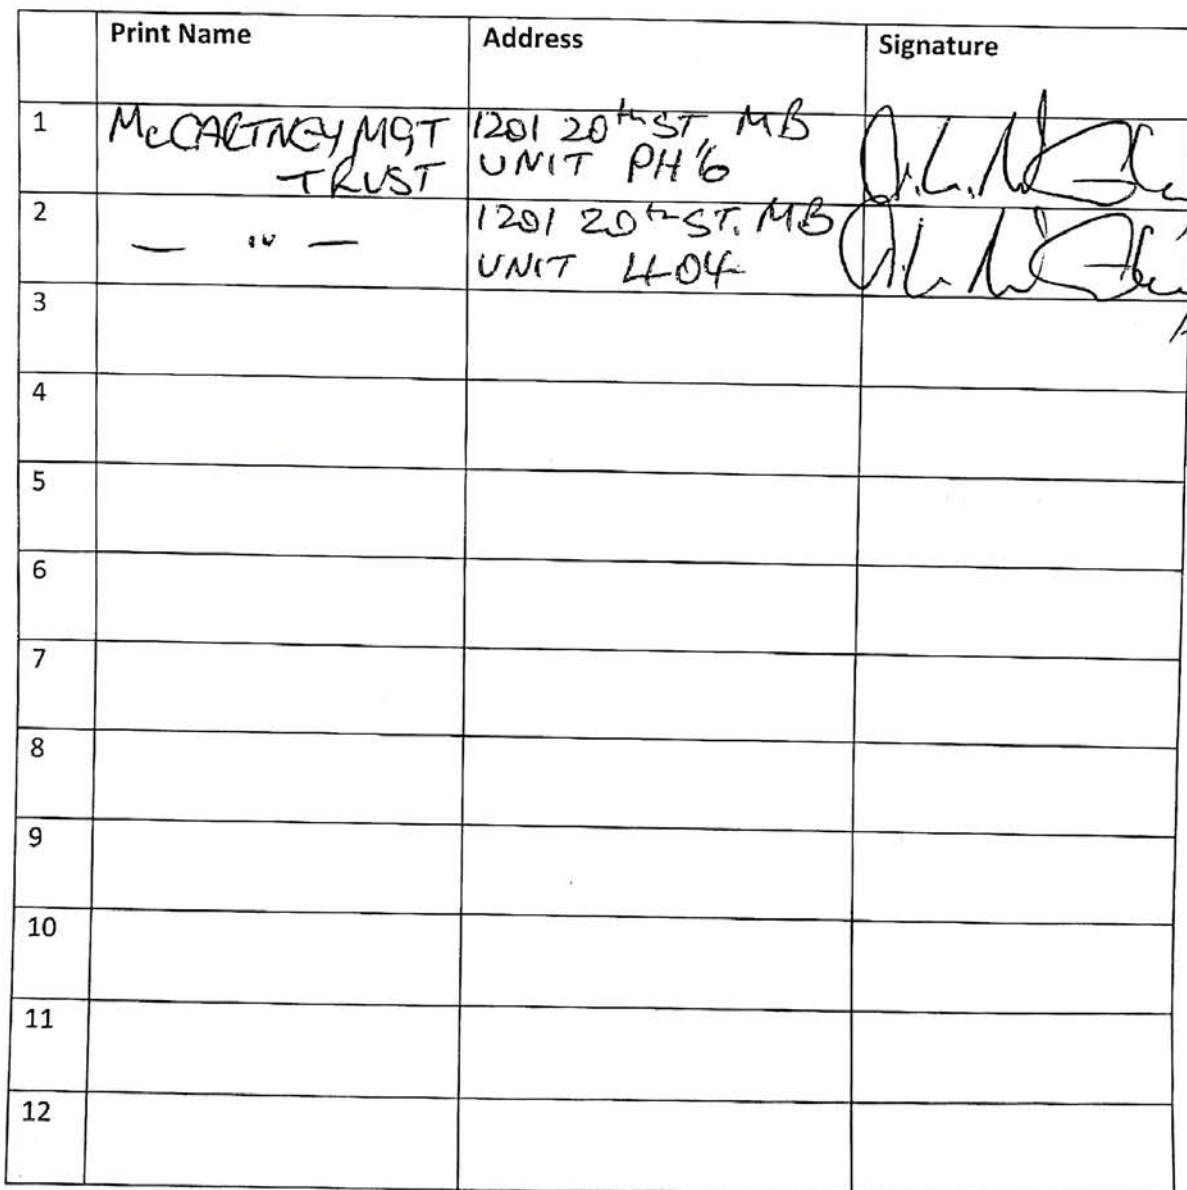 Print Name Address Signature
1 McCARTNEY MGT 1201 20th ST. MB
TRUST UNIT PH 6
2 — " — 1201 20th ST. MB
UNIT 404
3
4
5
6
7
8
9
10
11
12